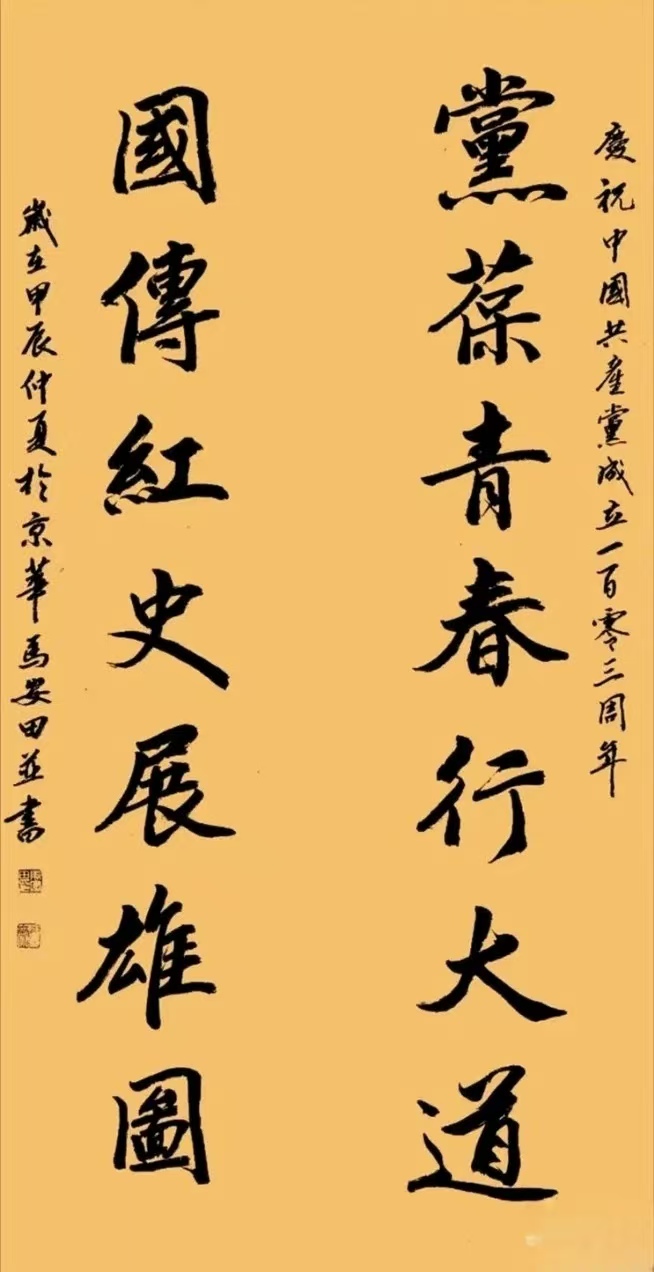 慶祝中國共產黨成立一百零三周年
黨葆青春行大道
國傳紅史展雄圖
歲在甲辰仲夏於京華馬安田並書